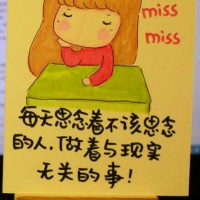 miss
miss
每天思念着不该思念
的人.做着与现实
无关的事!